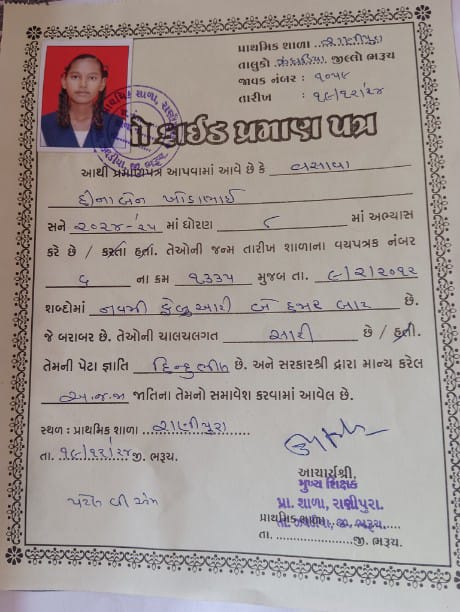 પ્રાથમિક શાળા રાણીપુરા
તાલુકો ઝઘડીયા જીલ્લો ભરૂચ
જાવક નંબર : ૧૦૫૯
તારીખ : ૧૯/૧૨/૨૪
બોનાફાઇડ પ્રમાણ પત્ર
આથી પ્રમાણપત્ર આપવામાં આવે છે કે વસાવા
હીનાબેન ખોડાભાઈ
સને ૨૦૨૪-૨૫ માં ધોરણ ૮ માં અભ્યાસ
કરે છે / કરતા હતા. તેઓની જન્મ તારીખ શાળાના વયપત્રક નંબર
૬ ના ક્રમ ૧૩૩૫ મુજબ તા. ૯/૨/૨૦૧૨
શબ્દોમાં નવમી ફેબ્રુઆરી બે હજાર બાર છે.
જે બરાબર છે. તેઓની ચાલચલગત સારી છે / હતી.
તેમની પેટા જ્ઞાતિ હિન્દુ ભીલ છે. અને સરકારશ્રી દ્રારા માન્ય કરેલ
અ.જ.જા જાતિના તેમનો સમાવેશ કરવામાં આવેલ છે.
સ્થળ : પ્રાથમિક શાળા રાણીપુરા
તા. ૧૯/૧૨/૨૪ જી. ભરૂચ.
આચાર્યશ્રી,
મુખ્ય શિક્ષક
પ્રા. શાળા, રાણીપુરા.
પ્રાથમિક શાળા
જી. ભરૂચ.
તા. જી. ભરૂચ.